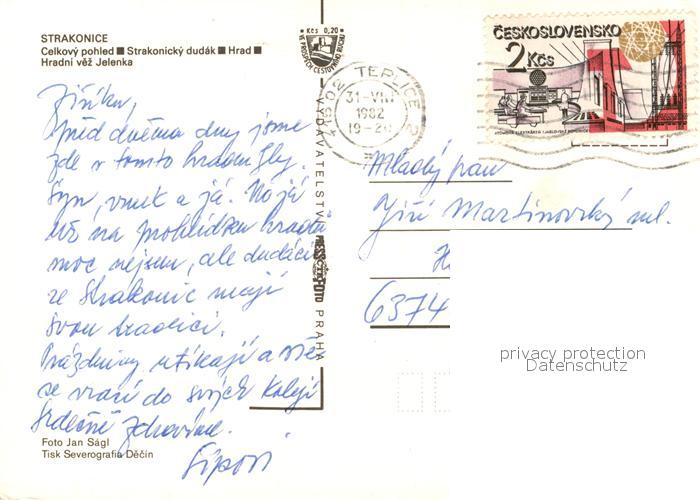 STRAKONICE
Celkový pohled ■ Strakonický dudák ■ Hrad ■
Hradní věž Jelenka
Jiříku,
před dvěma dny jsme
zde v tomto hradu byly.
Syn, vnuk a já. No já
už na prohlídku hradu
moc nejsem, ale dudáci
ze Strakonic mají
svou tradici.
Prázdniny utíkají a vše
se vrací do svých kolejí
Srdečně zdravíme.
Foto Jan Ságl
Tisk Severografia Děčín
Kčs 0,20
VE PROSPĚCH CESTOVNÍHO RUCHU
VYDAVATELSTVÍ PRESSFOTO PRAHA
TEPLICE 2
31-VIII
1982
19-20
ČESKOSLOVENSKO
2 Kčs
Mladý pan
Jiří Martinovský ml.
H
6374
privacy protection
Datenschutz